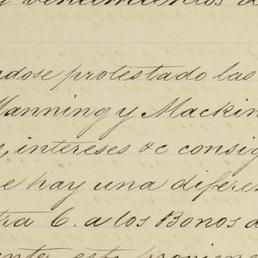 ndose protestado las
Manning y Mackin
intereses &c consig
e hay una difere
tra C. a los Bonos d